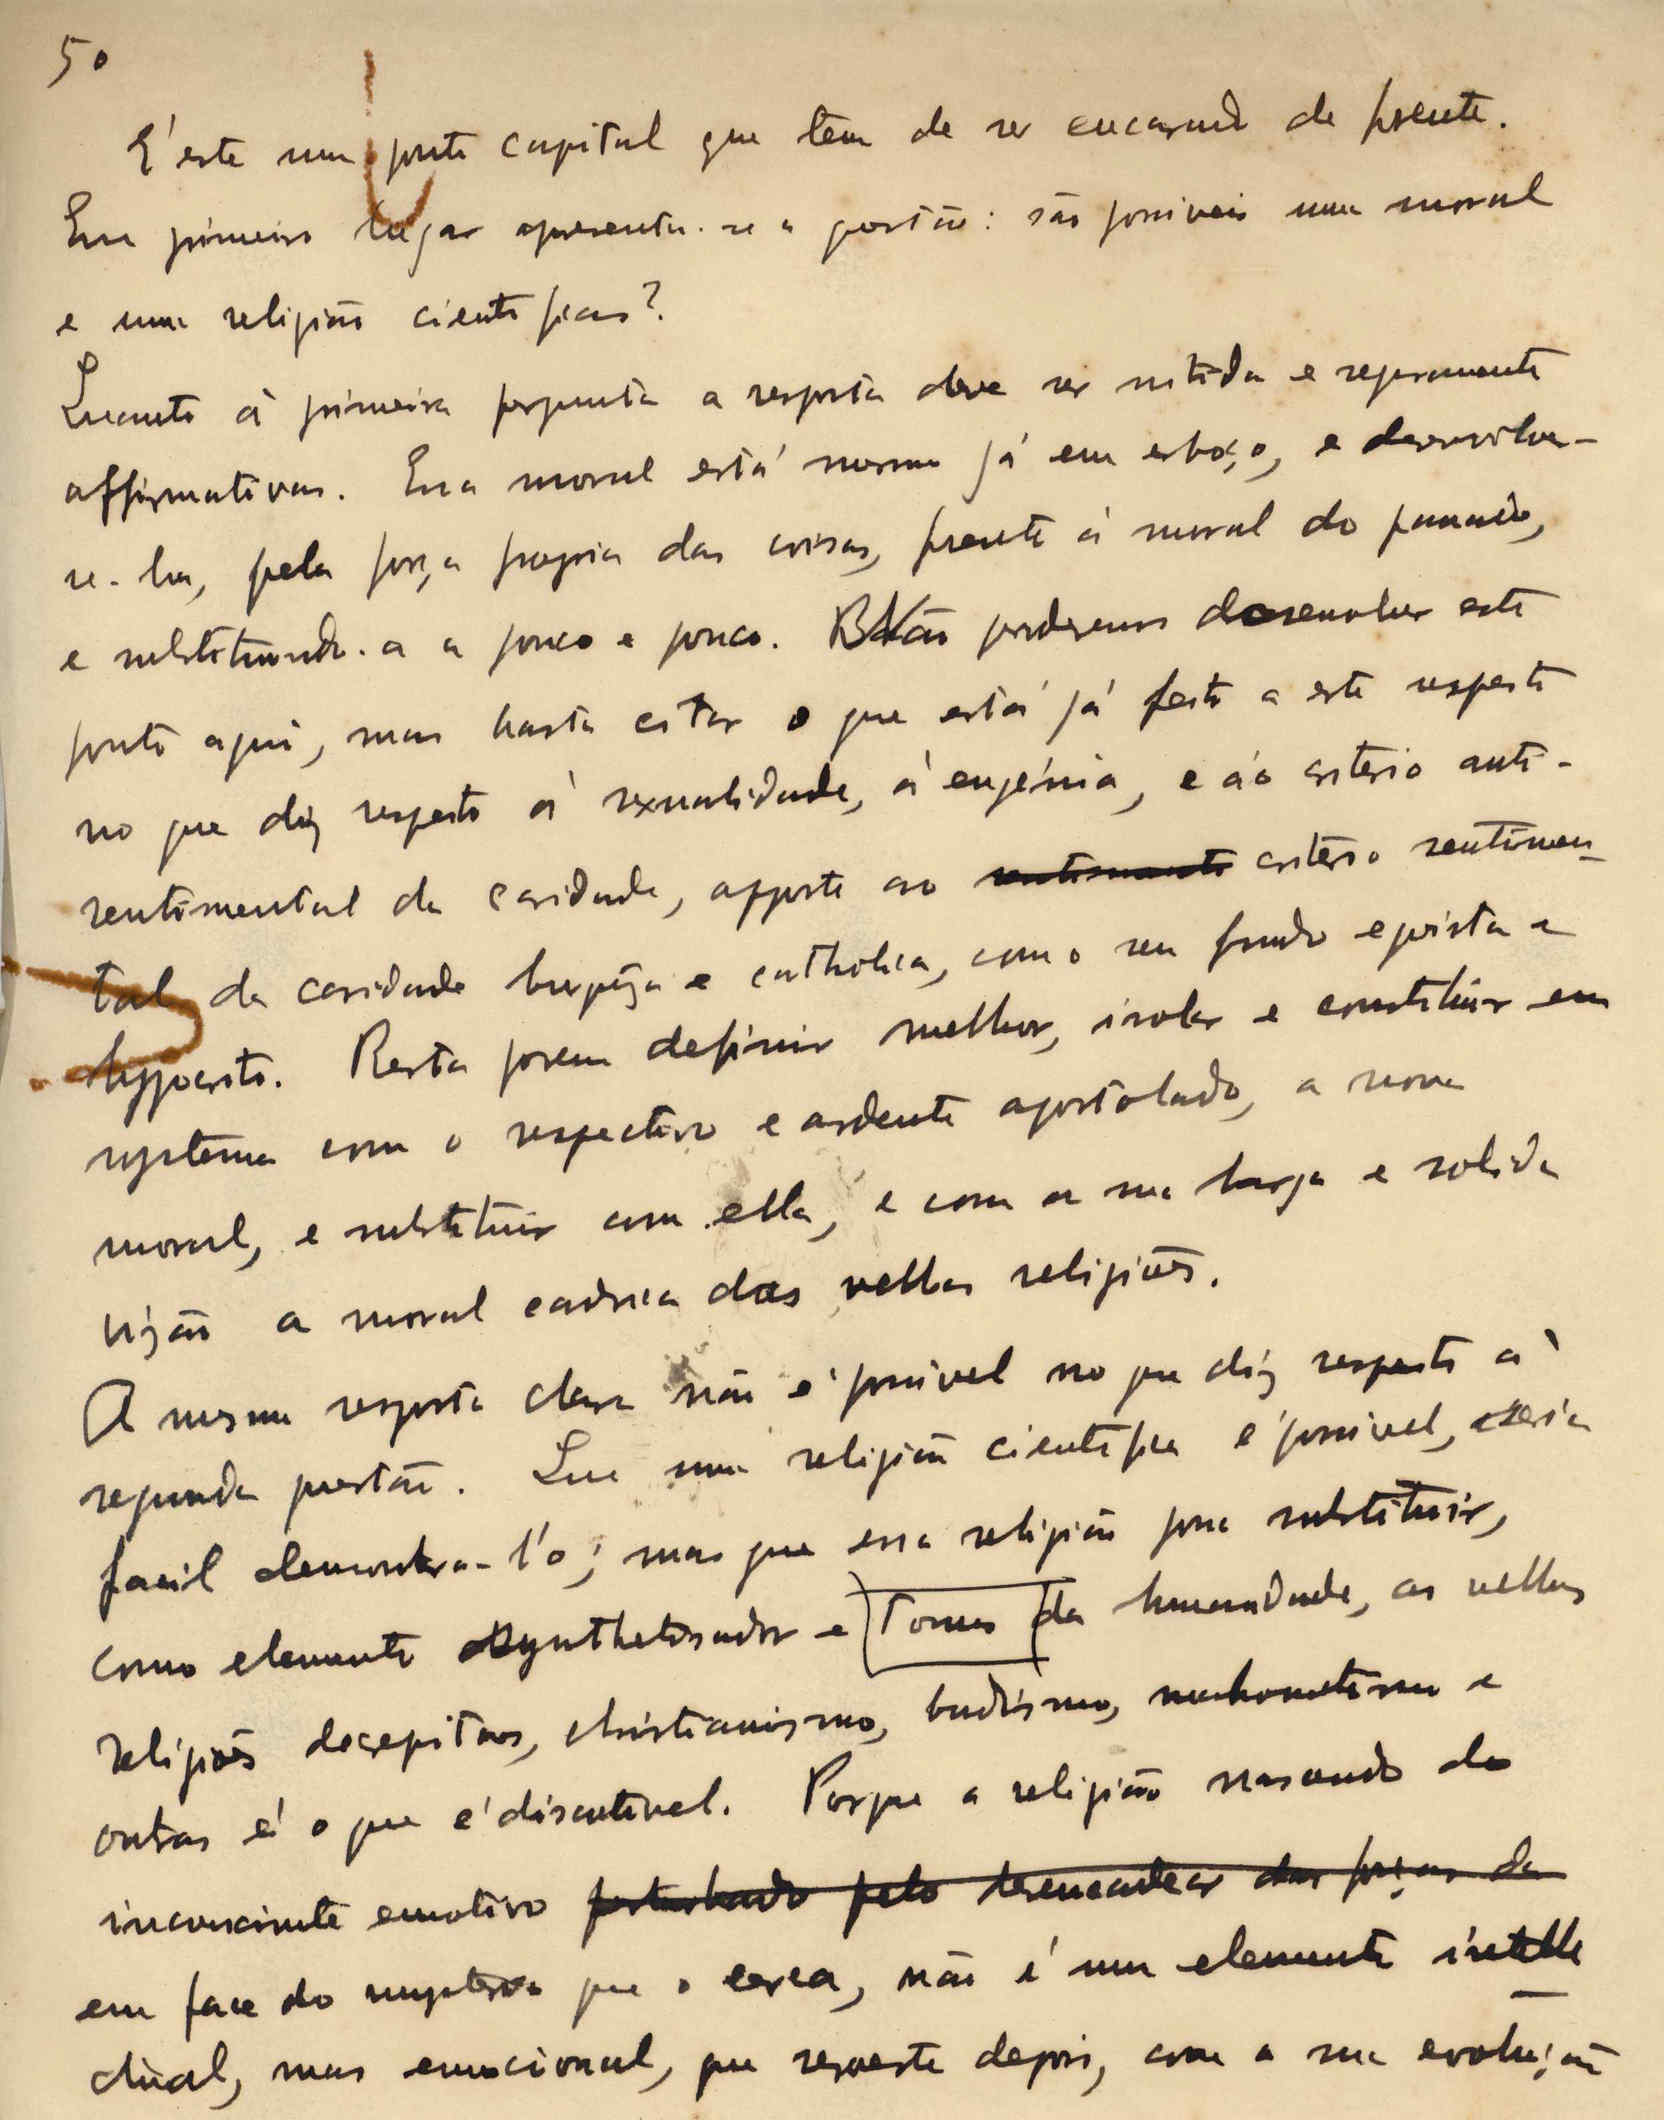 50
É este um ponto capital que tem de ser encarado de frente.
Em primeiro lugar apresenta-se a questão: são possiveis uma moral
e uma religião cientificas?
Quanto á primeira pergunta a resposta deve ser nitida e seguramente
affirmativas. Essa moral está mesmo já em esboço, e desenvolve-
se-ha, pela força propria das coisas, frente á moral do passado,
e substituindo-a a pouco e pouco. Não poderemos desenvolver este
ponto aqui, mas basta citar o que está já feito a este respeito
no que diz respeito á sexualidade, á eugénia, e áo criterio anti-
sentimental da caridade, opposto ao sentimento criterio sentimen-
tal da caridade burgueza e catholica, com o seu fundo egoista e
hypocrita. Resta porem definir melhor, isolar e constituir em
systema com o respectivo e ardente apostolado, a nova
moral, e substituir com ella, e com a sua larga e solida
visão a moral caduca das velhas religiões.
A mesma resposta clara não é possivel no que diz respeito á
segunda questão. Que uma religião cientifica é possivel, seria
facil demonstra-l'o; mas que essa religião possa substituir,
como elemento synthetisador e Tonus da humanidade, as velhas
religiões decrepitas, christianismo, budismo, mahometismo e
outras é o que é discutivel. Porque a religião nascendo do
inconsciente emotivo perturbado pelo desencadear das forças da
em face do mysterio que o cerca, não é um elemento intelle
ctual, mas emocional, que reveste depois, com a sua evolução